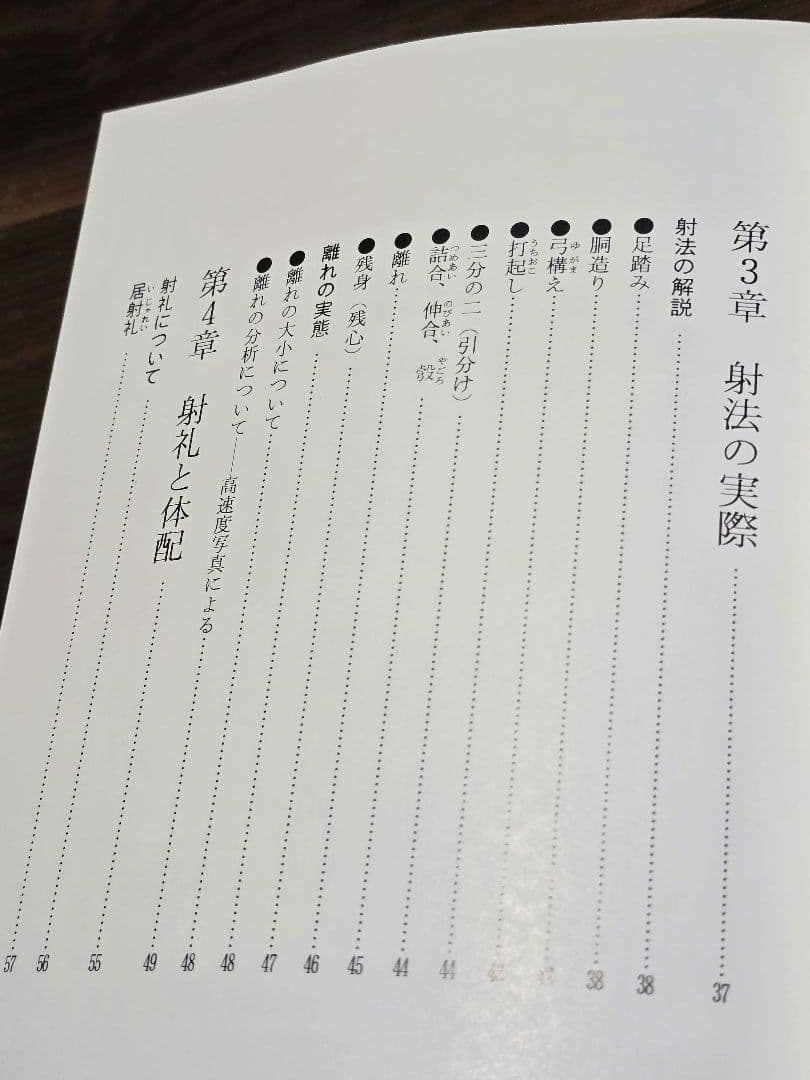 第3章 射法の実際 37
射法の解説 38
●足踏み 38
●胴造り
ゆがま
●弓構え
うちおこ
●打起し 44
●三分の二(引分け) 44
つめあい のびあい やごろ
●詰合、伸合、彀 45
●離れ 46
●残身(残心) 47
離れの実態 48
●離れの大小について 48
●離れの分析について――高速度写真による 49
第4章 射礼と体配 55
射礼について 56
いじゃれい
居射礼 57